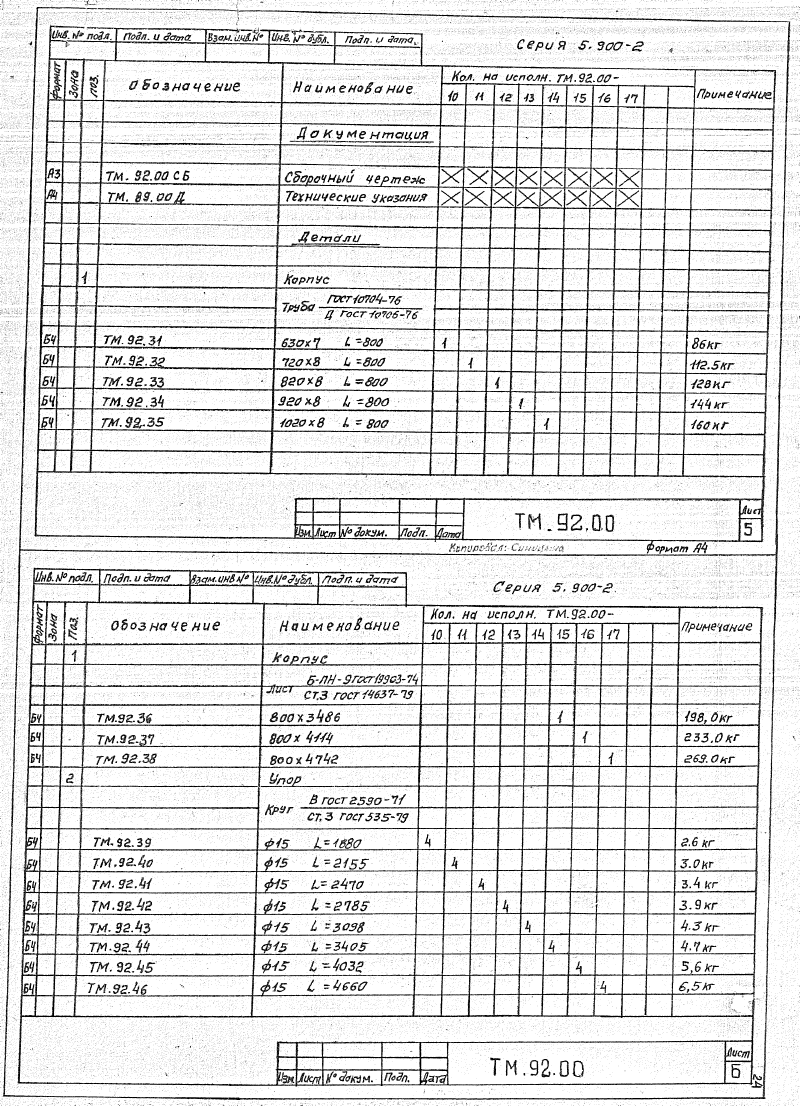 Инв. № подл. Подп. и дата Взам. инв. № Инв. № дубл. Подп. и дата
Серия 5.900-2
Формат Зона Поз. Обозначение Наименование Кол. на исполн. ТМ.92.00- Примечание
10 11 12 13 14 15 16 17
Документация
А3 ТМ. 92.00 СБ Сборочный чертеж
А4 ТМ. 89.00 Д Технические указания
Детали
1 Корпус
Труба ГОСТ 10704-76
Д ГОСТ 10706-76
БЧ ТМ.92.31 630×7 L=800 1 86кг
БЧ ТМ.92.32 720×8 L=800 1 112.5кг
БЧ ТМ.92.33 820×8 L=800 1 128кг
БЧ ТМ.92.34 920×8 L=800 1 144кг
БЧ ТМ.92.35 1020×8 L=800 1 160кг
Изм. Лист № докум. Подп. Дата
ТМ.92.00
Лист
5
Копировал: Формат А4
Инв. № подл. Подп. и дата Взам. инв № Инв. № дубл. Подп. и дата
Серия 5.900-2
Формат Зона Поз. Обозначение Наименование Кол. на исполн. ТМ.92.00- Примечание
10 11 12 13 14 15 16 17
1 Корпус
Лист Б-ПН-9 ГОСТ 19903-74
СТ.3 ГОСТ 14637-79
БЧ ТМ.92.36 800×3486 1 198,0кг
БЧ ТМ.92.37 800×4114 1 233.0кг
БЧ ТМ.92.38 800×4742 1 269.0кг
2 Упор
Круг В ГОСТ 2590-71
СТ.3 ГОСТ 535-79
БЧ ТМ.92.39 ф15 L=1880 4 2.6 кг
БЧ ТМ.92.40 ф15 L=2155 4 3.0кг
БЧ ТМ.92.41 ф15 L=2470 4 3.4 кг
БЧ ТМ.92.42 ф15 L=2785 4 3.9 кг
БЧ ТМ.92.43 ф15 L=3098 4 4.3 кг
БЧ ТМ.92.44 ф15 L=3405 4 4.7 кг
БЧ ТМ.92.45 ф15 L=4032 4 5,6 кг
БЧ ТМ.92.46 ф15 L=4660 4 6,5 кг
Изм Лист № докум. Подп. Дата
ТМ.92.00
Лист
6
24